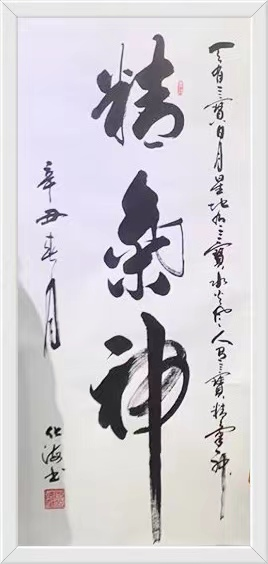 天有三寳日月星地有三寳水火风人有三寳精氣神
精氣神
辛丑春月
化海书